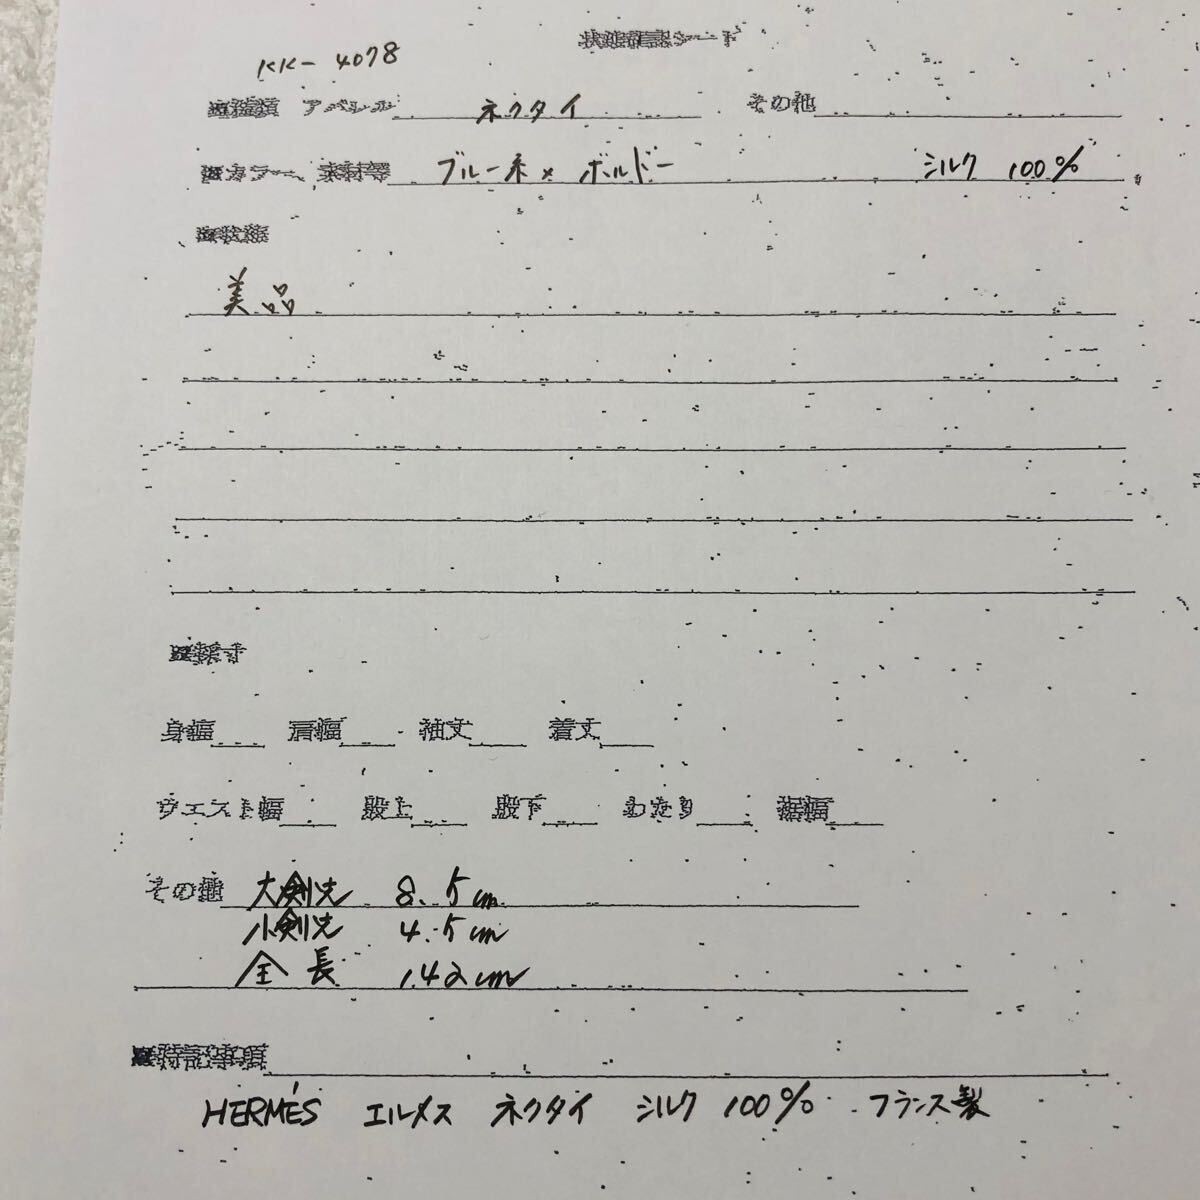 状態確認シート
KK-4078
■種類 アパレル ネクタイ その他
■カラー、素材等 ブルー系×ボルドー シルク 100%
■状態
美品
■採寸
身幅 肩幅 袖丈 着丈
ウエスト幅 股上 股下 わたり 裾幅
その他 大剣先 8.5cm
小剣先 4.5cm
全長 142cm
■特記事項
HERMÉS エルメス ネクタイ シルク 100% フランス製